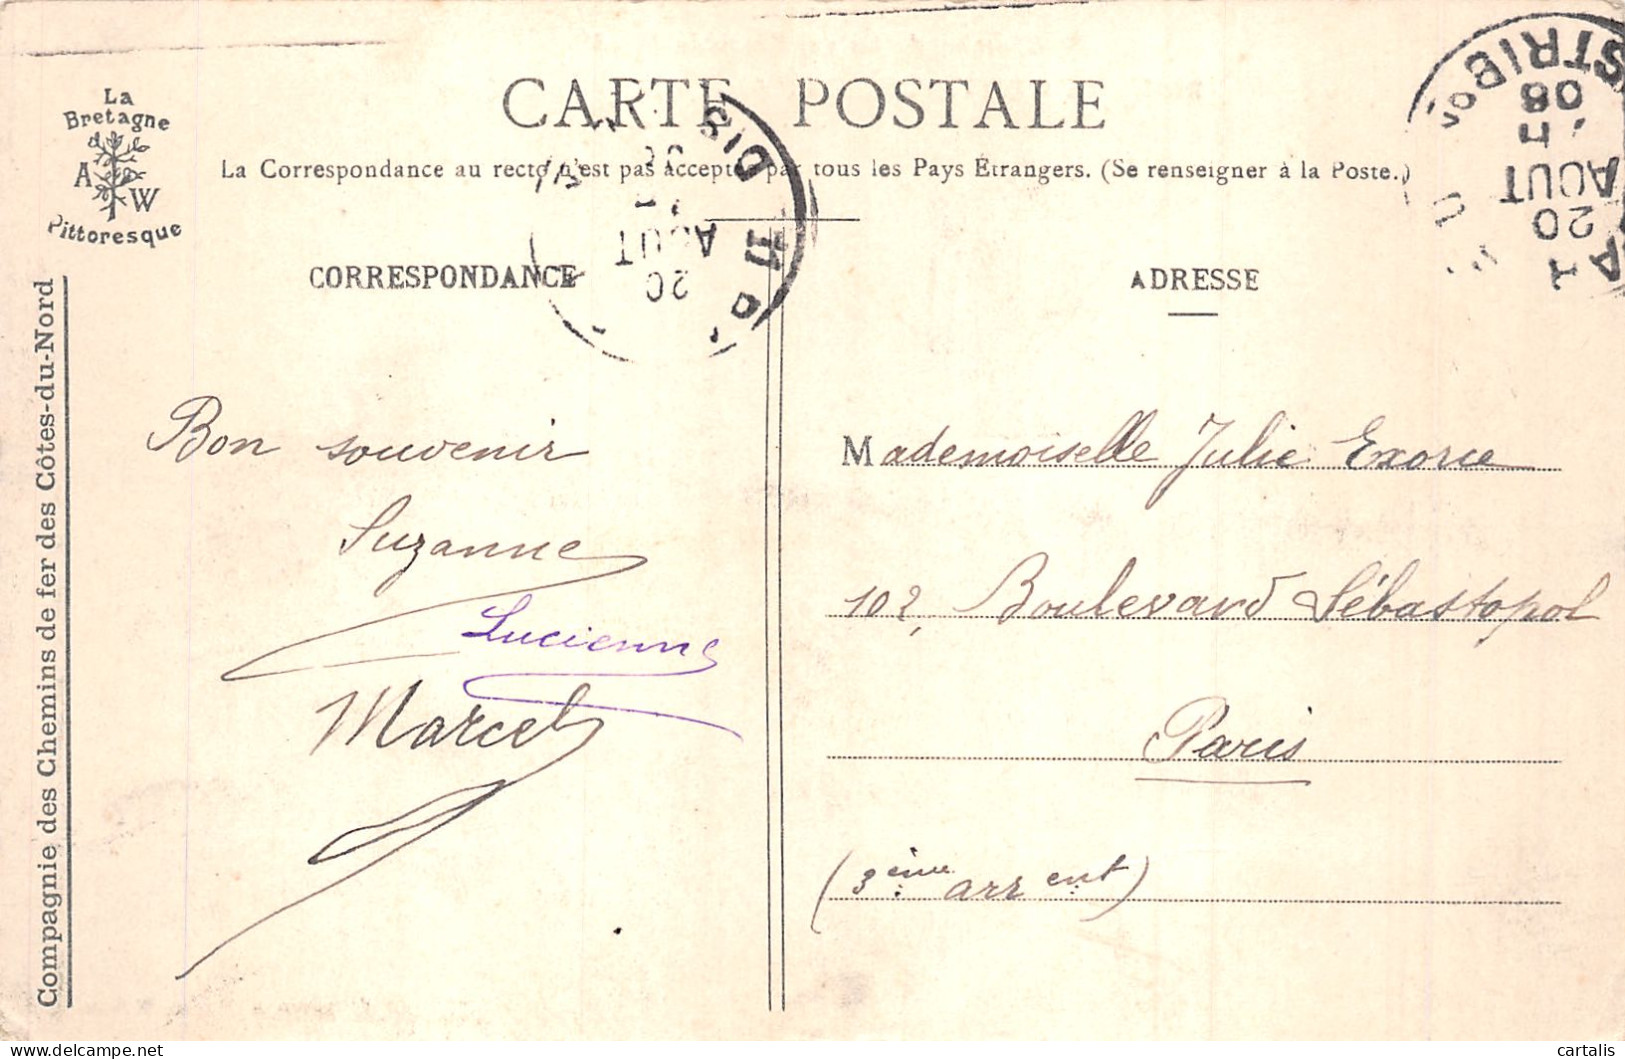 La
Bretagne
A W
Pittoresque
CARTE POSTALE
La Correspondance au recto n'est pas acceptée par tous les Pays Étrangers. (Se renseigner à la Poste.)
CORRESPONDANCE
Bon souvenir
Suzanne
Lucienne
Marcel
ADRESSE
Mademoiselle Julie Exorce
102, Boulevard Sébastopol
Paris
(3ème arrent)
Compagnie des Chemins de fer des Côtes-du-Nord
20
AOUT
DIS
20
AOUT
08
STRIBon
cartalis
delcampe.net